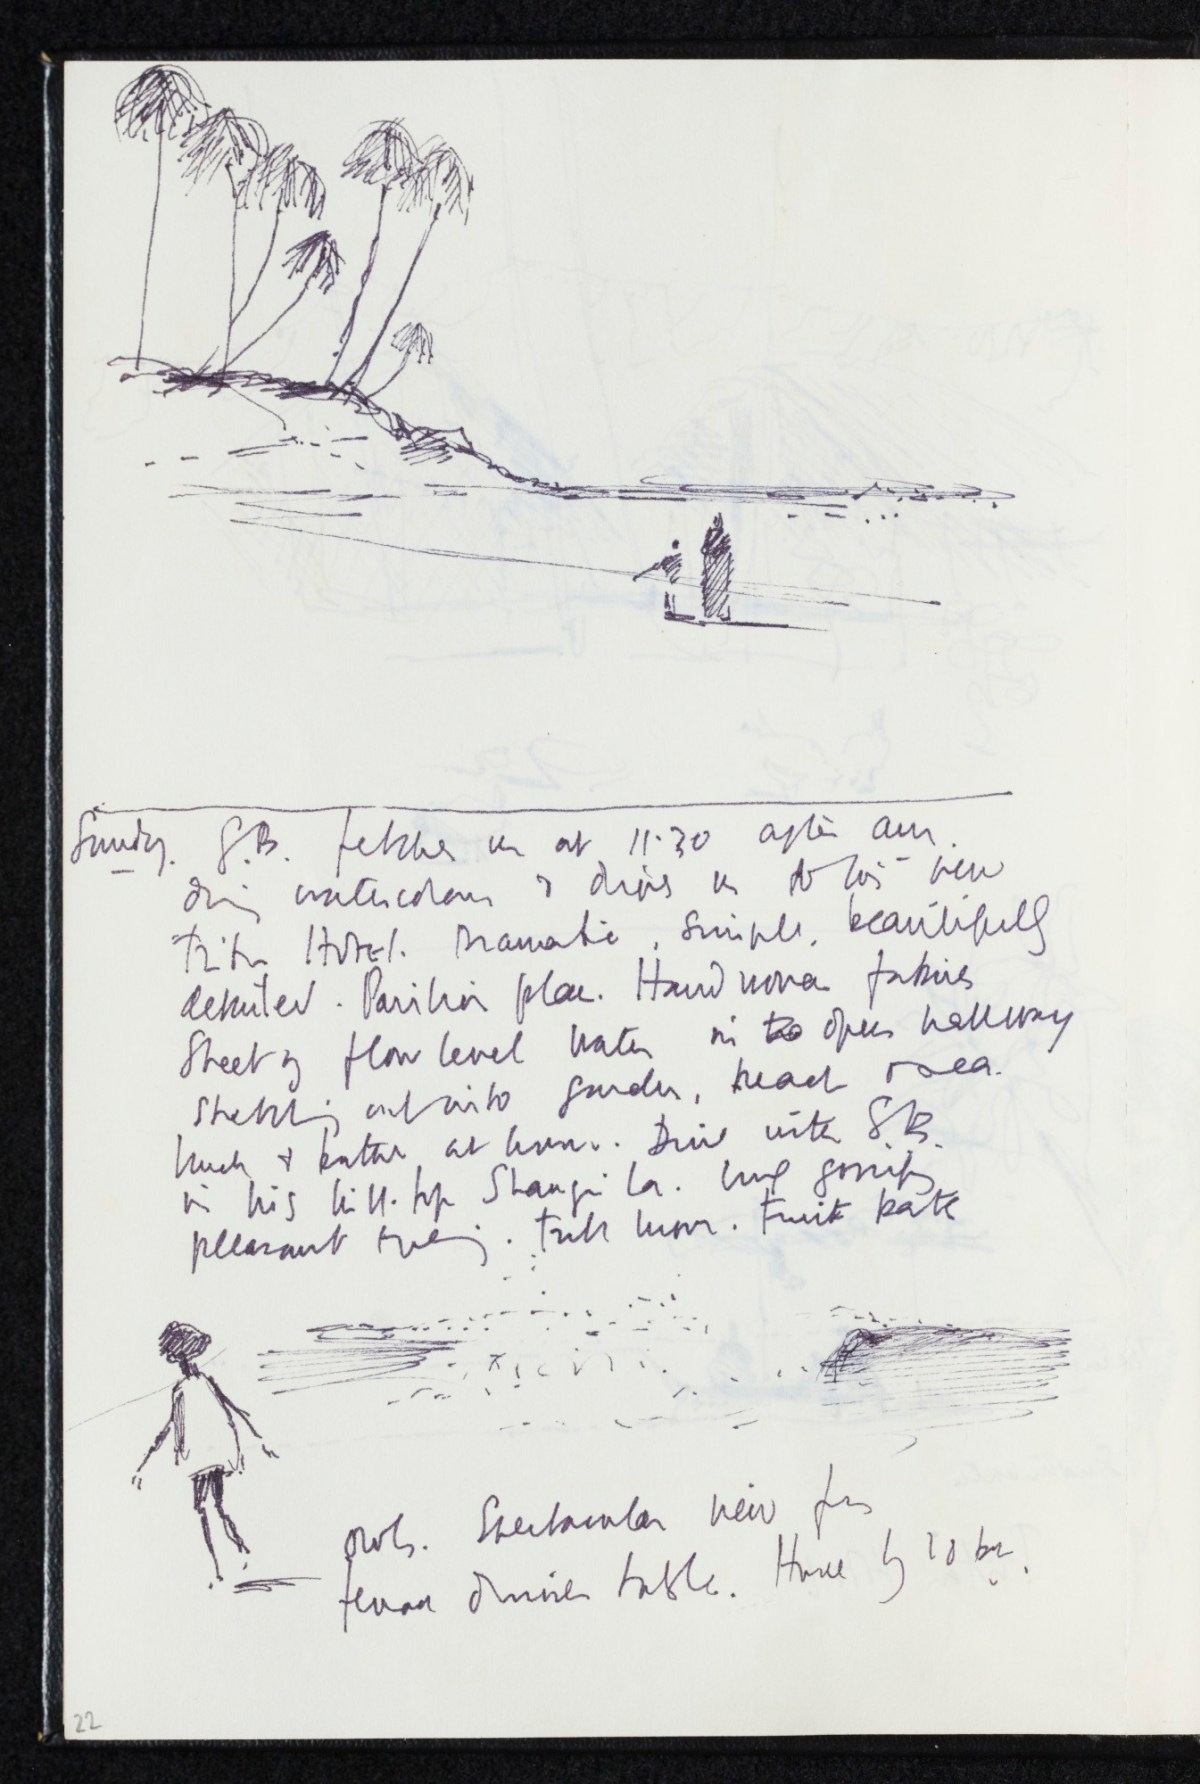 Sunday. G.B. fetches us at 11.30 after am.
doing watercolours & drives us to his new
Triton Hotel. Dramatic, simple, beautifully
detailed. Pavilion plan. Hand woven fabrics
Sheet of floor level water in open hallway
stretching out into garden, beach & sea.
Lunch & bathe at home. Dine with G.B.
in his hill top Shangri La. Long gossipy
pleasant evening. Full moon. Fruit bats
owls. Spectacular view from
terrace dinner table. Home by 10
22